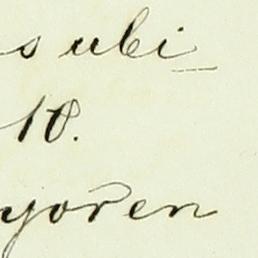 s ubi
10.
yoren